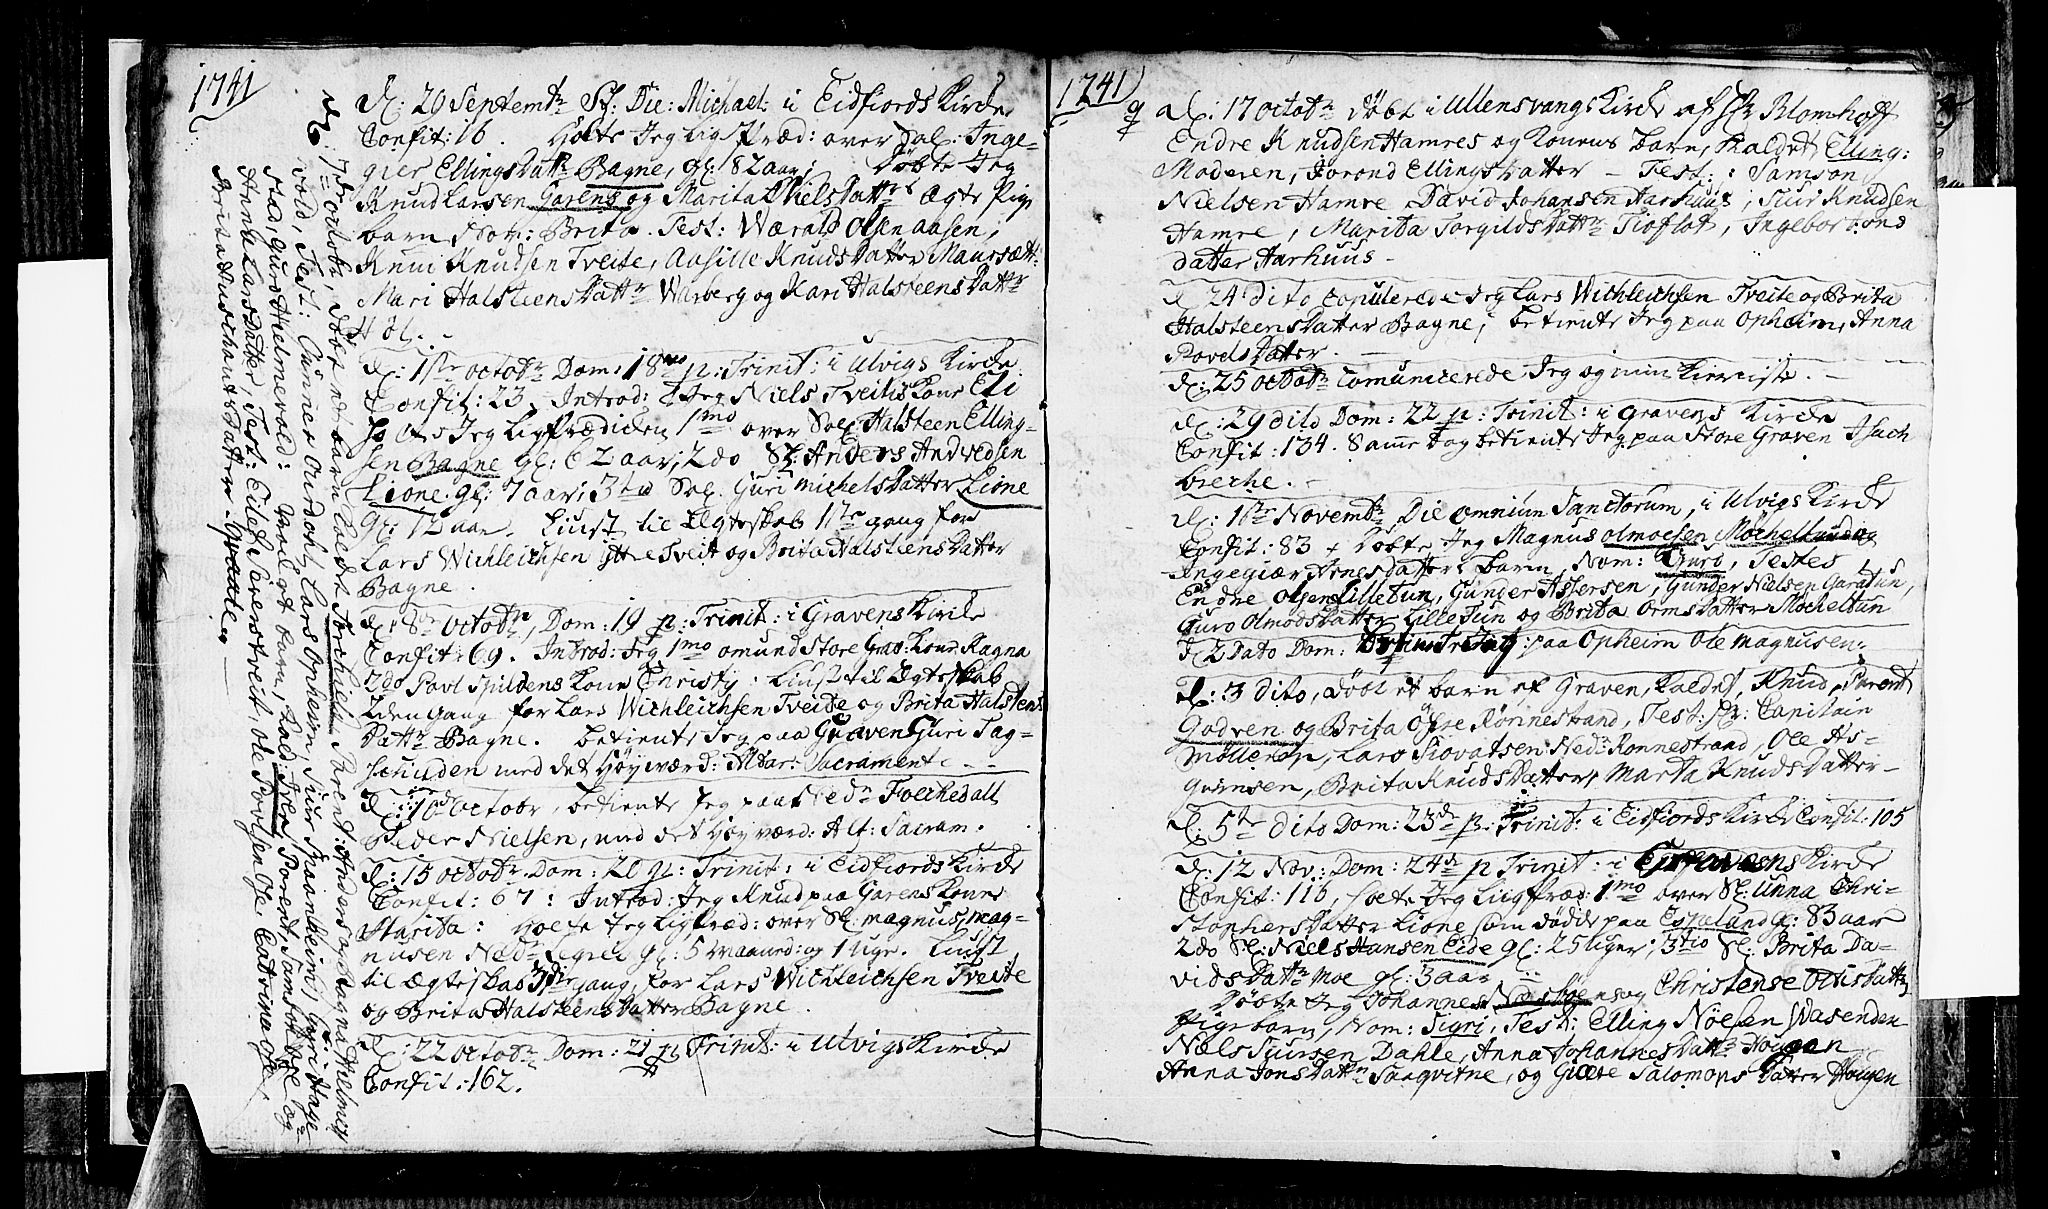 1741
d: 29 Septembr St: Die: Michael: i Eidfiords Kirche
Confit: 16. Holte Jeg Lig Præd: over Sal: Inge-
gier EllingsDattr Bagne, gl: 82 aar; Døbte Jeg
Knud Larsen Garens og Marita NielsDattrs Ægte Pige
barn Nom: Brita. Test: Wærald Olsen Aasen;
Knut Knudsen Tveite, Aasille KnudsDatter Maursætt:
Mari HalsteensDattr Warberg og Kari HalsteensDattr
Høl.
d: 1ste Octobr Dom: 18 p: Trinit: i Ulvigs Kirche
Confit: 23. Introd: Jeg Niels Tveitis Kone Eli
Holte Jeg Ligprædicken 1mo over Sal: Halsteen Elling-
sen Bagne gl: 62 aar; 2do Sl: Anders Andvedsen
Lione gl: 7 aar; 3tio Sal: Guri MichelsDatter Lione
gl: 12 aar. Liust til Ægteskab 1ste gang for
Lars Wichleichsen Yttre Tveit og Brita HalsteensDatter
Bagne.
d: 8de Octobr, Dom: 19 p: Trinit: i Gravens Kirche
Confit: 69. Introd: Jeg 1mo omund Store Grav: Kone Ragna
2do Povl Spildens Kone Christi; Liust til Ægteskab
2den Gang for Lars Wichleichsen Tveite og Brita Halsteens
Dattr Bagne. betiente Jeg paa Graven Guri Tag-
schulden med det Høyværd: Altar: Sacramente --
d: 10de Octobr, betiente Jeg paa Nedr Foerkedall
Peder Nielsen, med det Høyværd: Alt: Sacram.
d: 15 Octobr Dom: 20 p: Trinit: i Eidfiords Kirche
Confit: 67: Introd: Jeg Knud paa Garens Kone
Marita: Holte Jeg Ligpræd: over Sl: Magnus Mag-
nusen Nedr Legrei gl: 5 Maaned: og 1 uge. Liust
til Ægteskab 3die gang, for Lars Wichleichsen Tveite
og Brita HalsteensDatter Bagne.
d: 22 Octobr Dom: 21 p: Trinit: i Ulvigs Kirche
Confit: 162.
d: 7de Octobr, døbt et barn kaldet Torchiel, Parent: Anders og Ragna Hielme
vold, Test: Gunner Lars Opheim, Siur Spaanheim,
Stad, Guro Hielmevold: kaldet Iver, Parent: Samson og
Anna LarsDatter, Test: Eilef Siverstveit, Ole Povlsen
1741
d: 17 Octobr døbt i Ullensvangs Kirche af Hr Blomhoff
Endre Knudsen Hamres og Konens barn, kaldet, Elling:
Moderen, Jorond EllingsDatter - Test: Samson
Nielsen Hamre David Johansen Aarhuus, Siur Knudsen
Hamre, Marita TorgildsDattr Tioflot, Ingebor
datter Aarhuus -
d 24 dito Copulerede Jeg Lars Wichleichsen Tveite og Brita
HalsteensDatter Bagne; betiente Jeg paa Opheim, Anna
PovelsDatter. -
d: 25 Octobr Comunicerede Jeg og min Kieriste. -
d: 29 dito Dom: 22 p: Trinit: i Gravens Kirche
Confit: 134. Samme Dag betiente Jeg paa Store Graven Isach
bierche. -
d: 1ste Novembr, Die Omnium Sanctorum, i Ulvigs Kirche
Confit: 83 + Døbte Jeg Magnus Olmoesen Mocheltun og
Ingegiær ArnesDatters barn, Nom: Guro, Testes
Endre Olsen Lilletun, Gunder Assersen, Gunder Nielsen Garatun,
Guro OlmodsDatter Lilletun og Brita OrmsDatter Mocheltun
d 2 Dato Dom: betiente Jeg paa Opheim Ole Magnusen.
d: 3 dito, døbt et barn af Graven, kaldet, Knud, Parent
Godven og Brita Øfre Rønnestrand, Test: Hr: Capitain
Møllerop, Lars Siovatsen Nedr Rønnestrand, Ole As-
grimsen, Brita KnudsDatter, Marta KnudsDatter -
d: 5te dito Dom: 23de p: Trinit: i Eidfiords Kirche Confit: 105
d: 12 Nov: Dom: 24de p Trinit: i Gravens Kirche
Confit: 116, holte Jeg Ligpræd: 1mo over Sl: Unna Chri-
stophersDatter Lione som døde paa Espeland gl: 83 aar
2do Sl: Niels Hansen Eide gl: 25 uger; 3tio Sl: Brita Da-
vidsDattr Moe gl: 3 aar
Døbte Jeg Johannes og Christense
Pigebarn, Nom: Sigri, Test: Elling Nøesen Wasenden
Niels Siursen Dahle, Anna JohannesDattr Hougen
Anna JonsDattr Saaqvitne, og Giøte SalomonsDatter Hougen